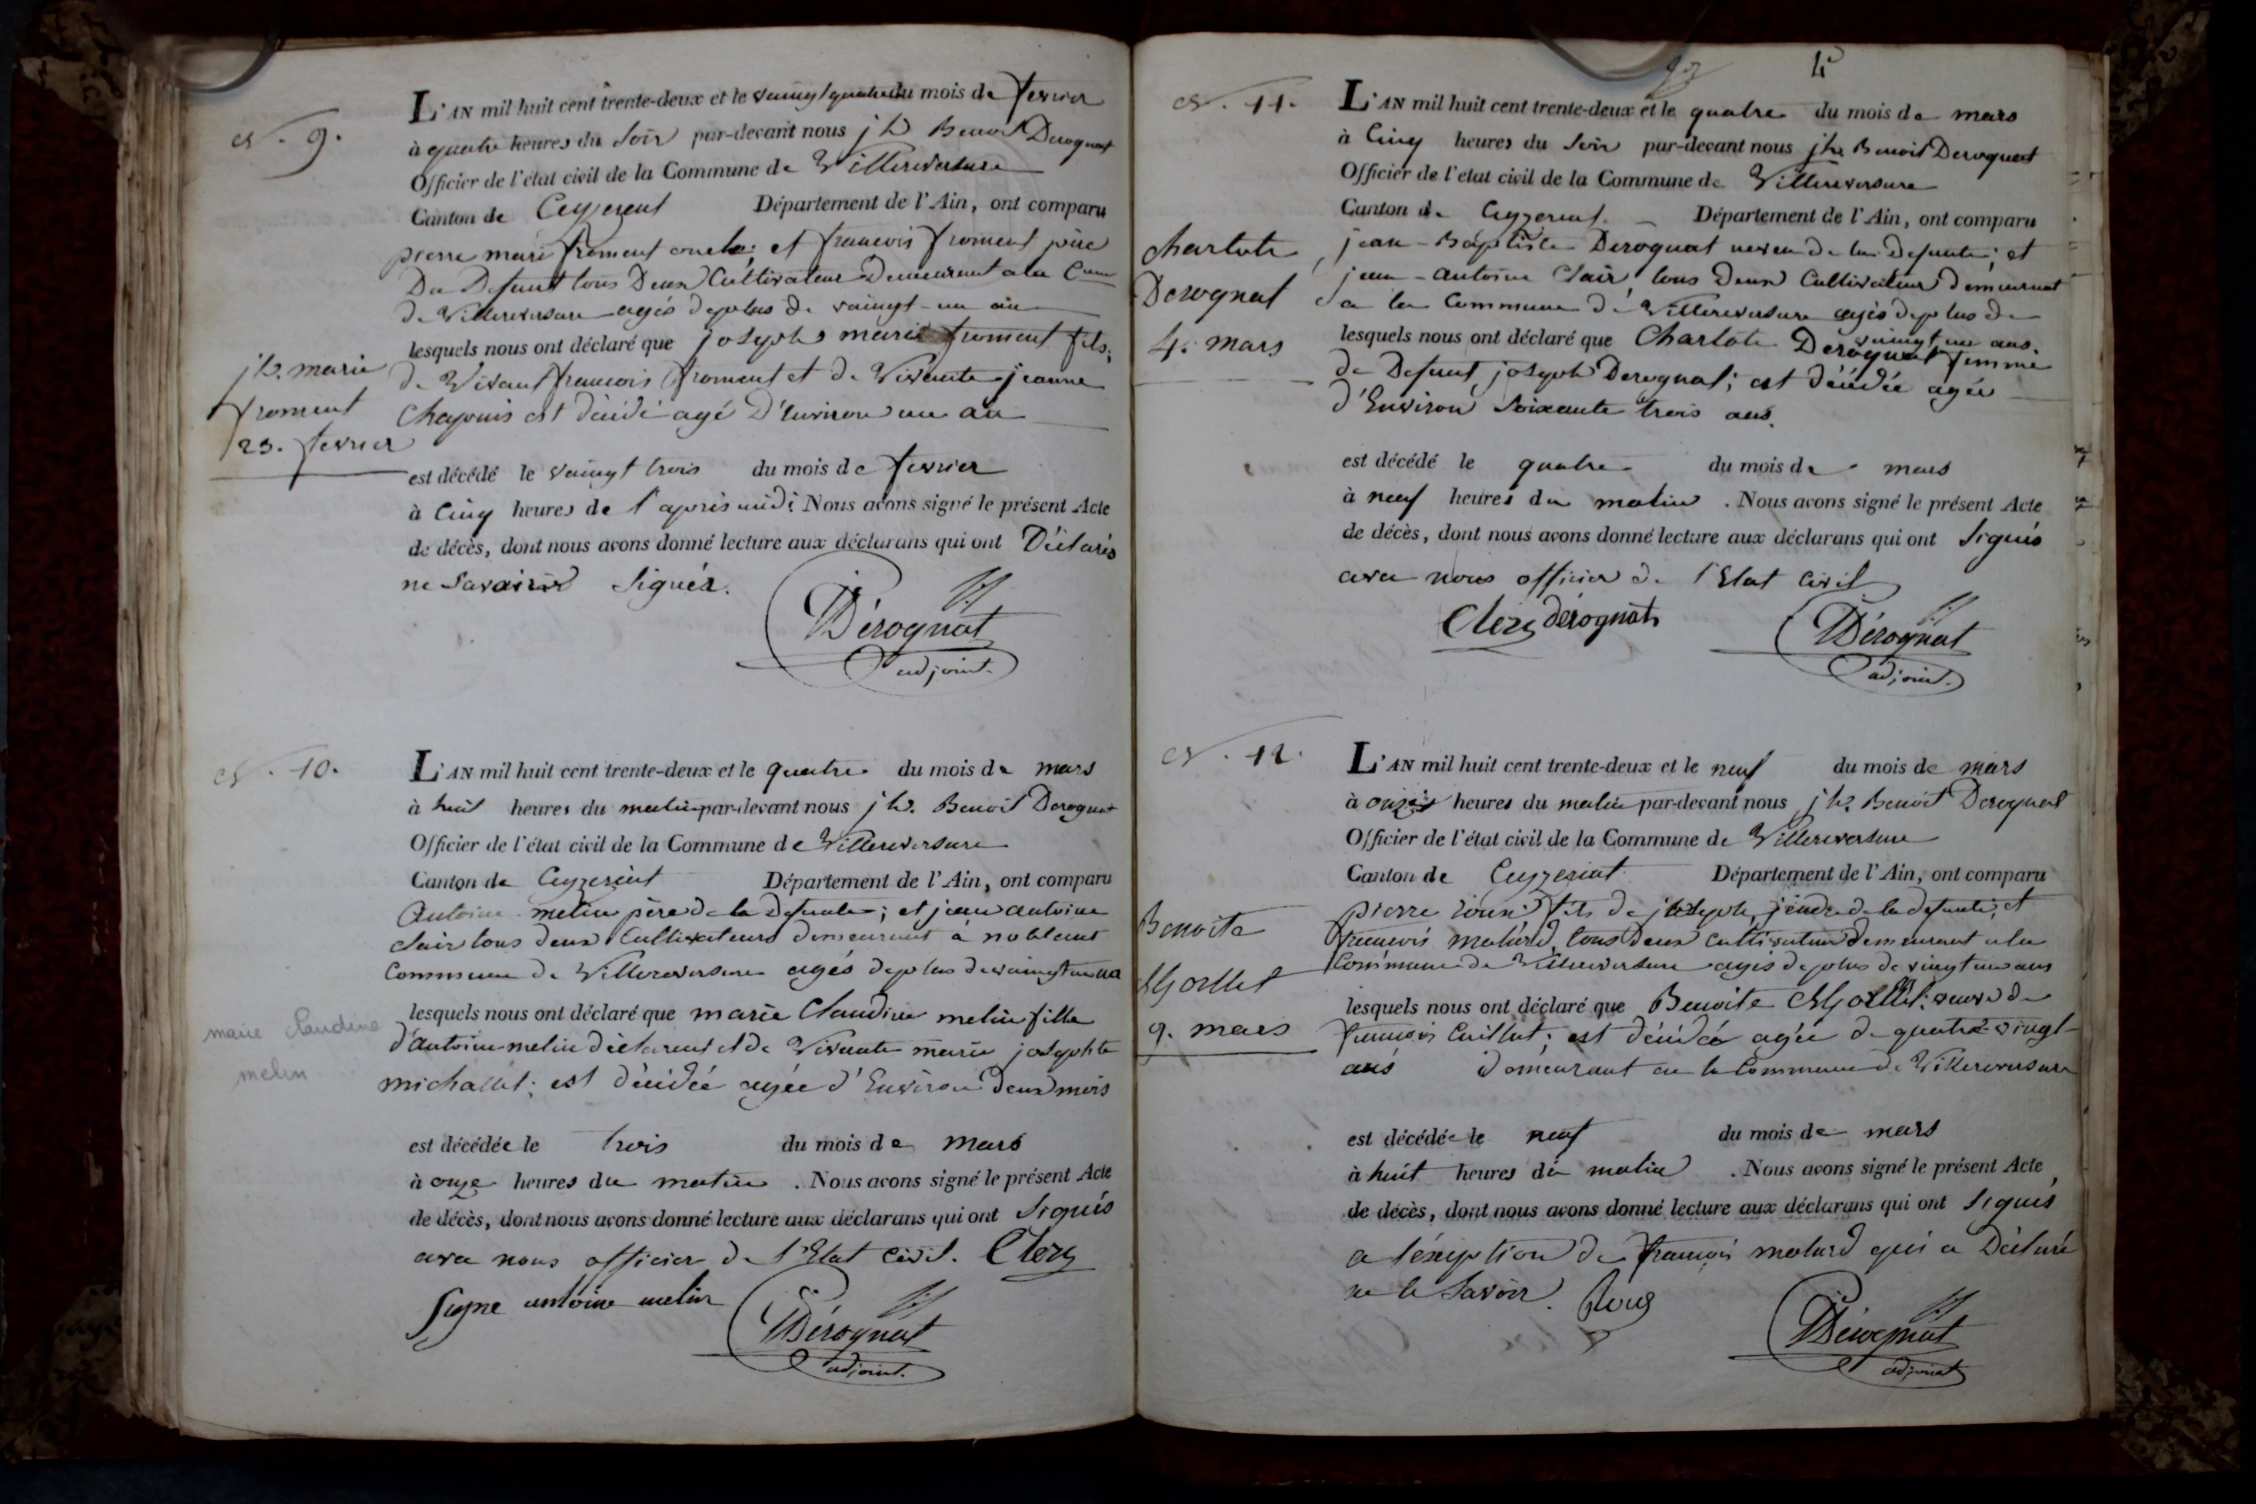 N. 9.
L'AN mil huit cent trente-deux et le vaingt quatre du mois de fevrier
à quatre heures du soir par-devant nous jh Benoit Derognat
Officier de l'état civil de la Commune de Villereversure
Canton de Ceyzeriat Département de l'Ain, ont comparu
pierre marie froment oncle; et francois froment père
Du Defunt tous Deux Cultivateur Demeurant a la Cune
de Villereversure agés deplus de vaingt-un an
lesquels nous ont déclaré que josephe marie froment fils;
de Vivant francois froment et de Vivante jeanne
Chapuis est décédé agé D'Environ un an
jh. marie
froment
23. fevrier
est décédé le vaingt trois du mois de fevrier
à Cinq heures de l'apris midi Nous avons signé le présent Acte
de décès, dont nous avons donné lecture aux déclarans qui ont Déclarés
ne Savoir Signér.
Dérognat
adjoint.
N. 10.
L'AN mil huit cent trente-deux et le quatre du mois de mars
à huit heures du matin par-devant nous jh. Benoit Derognat
Officier de l'état civil de la Commune de Villereversure
Canton de Ceyzeriat Département de l'Ain, ont comparu
Antoine melin père de la Defunte; et jean antoine
Clair tous deux Cultivateurs demeurant à noblant
Commune de Villereversure agés deplus de vaingt un an
lesquels nous ont déclaré que marie Claudine melin fille
d'antoine melin déclarent et de Vivante marie josephte
michallet; est décédée agée d'Environ deux mois
marie Claudine
melin
est décédée le trois du mois de mars
à onze heures du matin . Nous avons signé le présent Acte
de décès, dont nous avons donné lecture aux déclarans qui ont Signés
avec nous officier de l'Etat Civil. Clerc
Signe antoine melin
Dérognat
adjoint.
4
N. 11.
L'AN mil huit cent trente-deux et le quatre du mois de mars
à Cinq heures du Soir par-devant nous jh. Benoit Derognat
Officier de l'etat civil de la Commune de Villereversure
Canton de Ceyzeriat. Département de l'Ain, ont comparu
jean-Baptiste Derognat neveu de la Defunte; et
jean-antoine Clair, tous Deux Cultivateur demeurant
a la Commune de Villereversure agés deplus de
vaingt un ans.
lesquels nous ont déclaré que Charlote Derognat femme
de Defunt joseph Derognat; est décédée agée
d'Environ Soixante trois ans.
Charlote
Derognat
4. mars
est décédé le quatre du mois de mars
à neuf heures du matin . Nous avons signé le présent Acte
de décès, dont nous avons donné lecture aux déclarans qui ont Signés
avec nous officier de l'Etat Civil
Clerc dérognat
Dérognat
adjoint.
N. 12.
L'AN mil huit cent trente-deux et le neuf du mois de mars
à onze heures du matin par-devant nous jh. Benoit Derognat
Officier de l'état civil de la Commune de Villereversure
Canton de Ceyzeriat Département de l'Ain, ont comparu
pierre fils de joseph, jendre de la defunte; et
francois malard, tous deux cultivateur demeurant a la
Commune de Villereversure agés deplus de vingt un ans
lesquels nous ont déclaré que Benoite veuve de
francois Cuillat; est décédée agée de quatre vingt
ans demeurant en la Commune de Villereversure
Benoite
9. mars
est décédée le neuf du mois de mars
à huit heures du matin . Nous avons signé le présent Acte
de décès, dont nous avons donné lecture aux déclarans qui ont Signés
a l'éxeption de francois malard qui a Déclaré
ne le Savoir.
Dérognat
adjoint